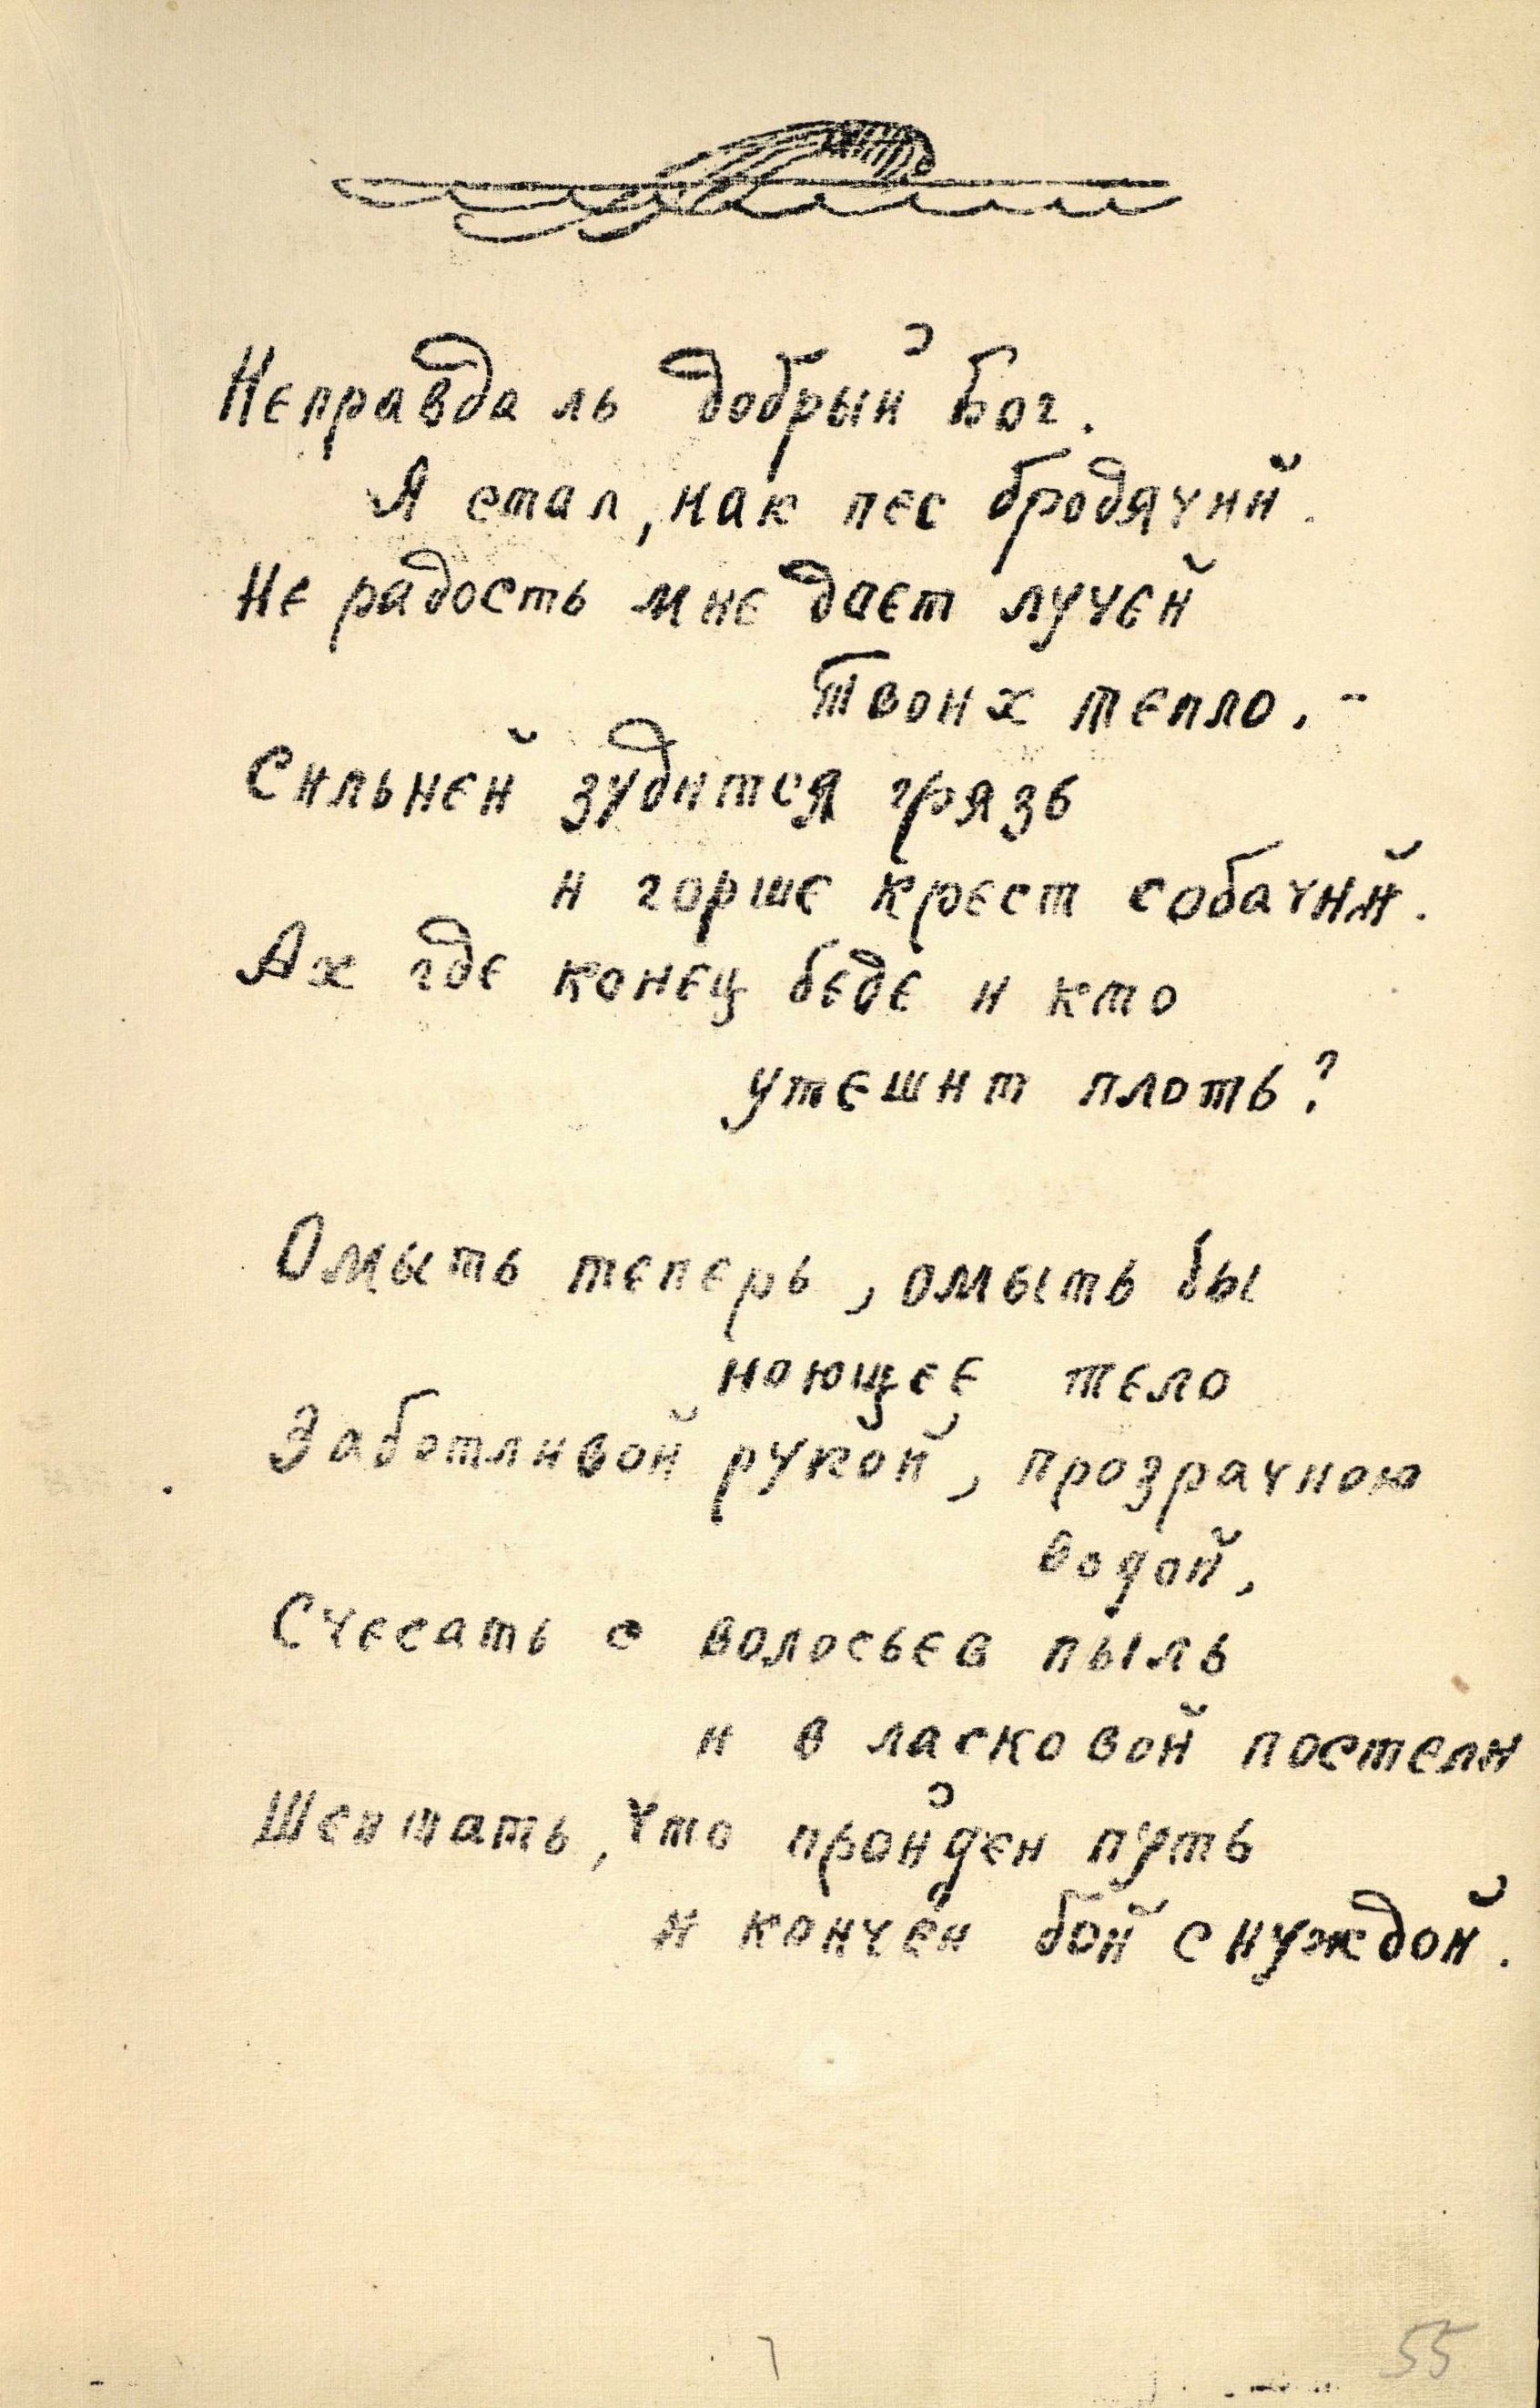 Неправда ль добрый Бог.
Я стал, как пес бродячий.
Не радость мне дает лучей
Твоих тепло. -
Сильней зудится грязь
и горше крест собачий.
Ах где конец беде и кто
утешит плоть?
Омыть теперь, омыть бы
ноющее тело
Заботливой рукой, прозрачною
водой,
Счесать с волосьев пыль
и в ласковой постели
Шептать, что пройден путь
и кончен бой с нуждой.
55